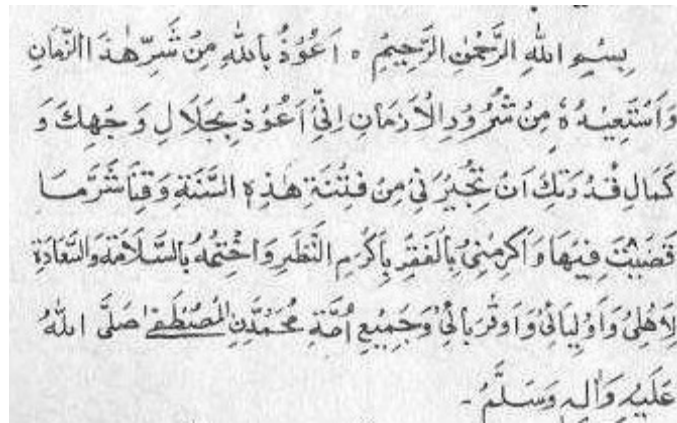 بِسْمِ اللهِ الرَّحْمٰنِ الرَّحِيْمِ ۰ اَعُوْذُ بِاللهِ مِنْ شَرِّ هٰذَا الزَّمَانِ
وَاَسْتَعِيْذُهٗ مِنْ شُرُوْرِ الْاَزْمَانِ اِنِّيْ اَعُوْذُ بِجَلَالِ وَجْهِكَ وَ
كَمَالِ قُدْرَتِكَ اَنْ تُجِيْرَنِيْ مِنْ فِتْنَةِ هٰذِهِ السَّنَةِ وَقِنَا شَرَّمَا
قَضَيْتَ فِيْهَا وَاَكْرِمْنِيْ بِالْفَقْرِ بِاَكْرَمِ النَّظَرِ وَاخْتِمْهُ بِالسَّلَامَةِ وَالسَّعَادَةِ
لِاَهْلِيْ وَاَوْلِيَائِيْ وَاَقْرِبَائِيْ وَجَمِيْعِ اُمَّةِ مُحَمَّدِنِ الْمُصْطَفٰى صَلَّى اللهُ
عَلَيْهِ وَاٰلِهٖ وَسَلَّمَ -